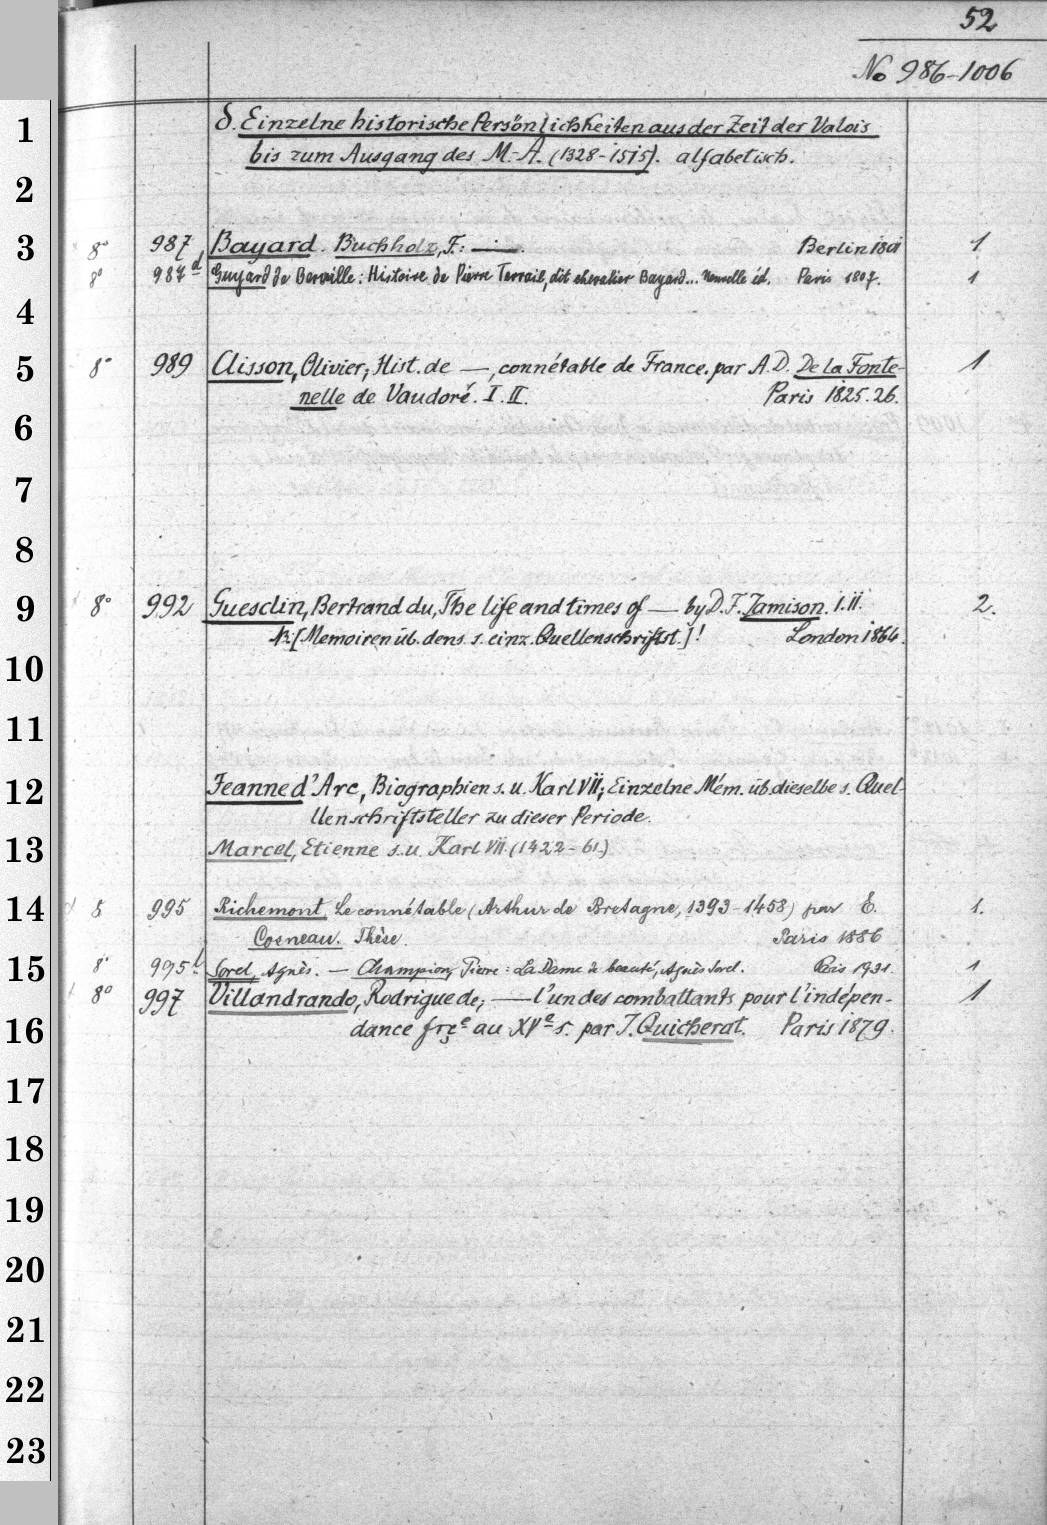 52
No 986-1006
1 δ. Einzelne historische Persönlichkeiten aus der Zeit der Valois
bis zum Ausgang des M.-A. (1328-1515). alfabetisch.
2
3 8° 987 Bayard. Buchholz, F.: —. Berlin 1801 1
8° 987d Guyard de Berville: Histoire de Pierre Terrail, dit chevalier Bayard... Nouvelle éd. Paris 1807. 1
4
5 8° 989 Clisson, Olivier; Hist. de —, connétable de France. par A.D. De la Fonte-
nelle de Vaudoré. I. II. Paris 1825.26. 1
6
7
8
9 8° 992 Guesclin, Bertrand du, The life and times of — by D.F. Jamison. I.II. 2.
[Memoiren üb. dens. s. einz. Quellenschriftst.]! London 1864.
10
11
12 Jeanne d'Arc, Biographien s. u. Karl VII; Einzelne Mém. üb dieselbe s. Quel-
llenschriftsteller zu dieser Periode.
13 Marcel, Etienne s. u. Karl VII. (1422-61.)
14 8 995 Richemont, Le connétable (Arthur de Bretagne, 1393-1458) par E. 1.
Cosneau. Thèse. Paris 1886
15 8° 995b Sorel, Agnès. — Champion, Pierre: La Dame de beauté, Agnès Sorel. Paris 1931. 1
8° 997 Villandrando, Rodrigue de; — l'un des combattants pour l'indépen- 1
16 dance frçe au XVe s. par J. Quicherat. Paris 1879.
17
18
19
20
21
22
23